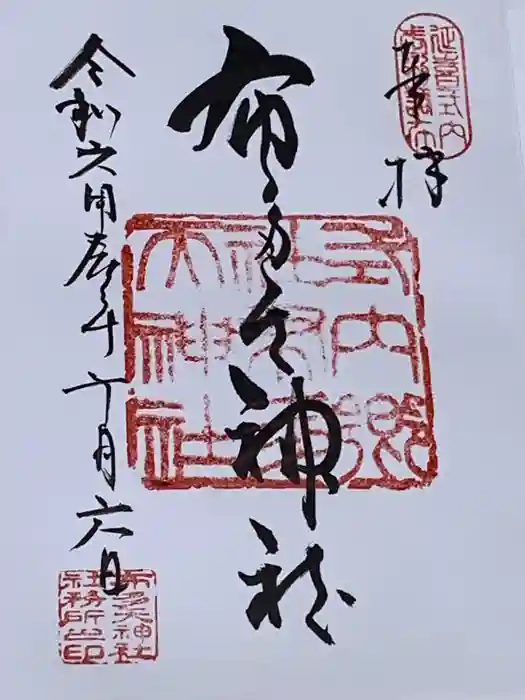 延喜式内
奉拝
式内郷
社布多
天神社
布多天神社
令和六甲辰年十月六日
布多天神社
社務所之印